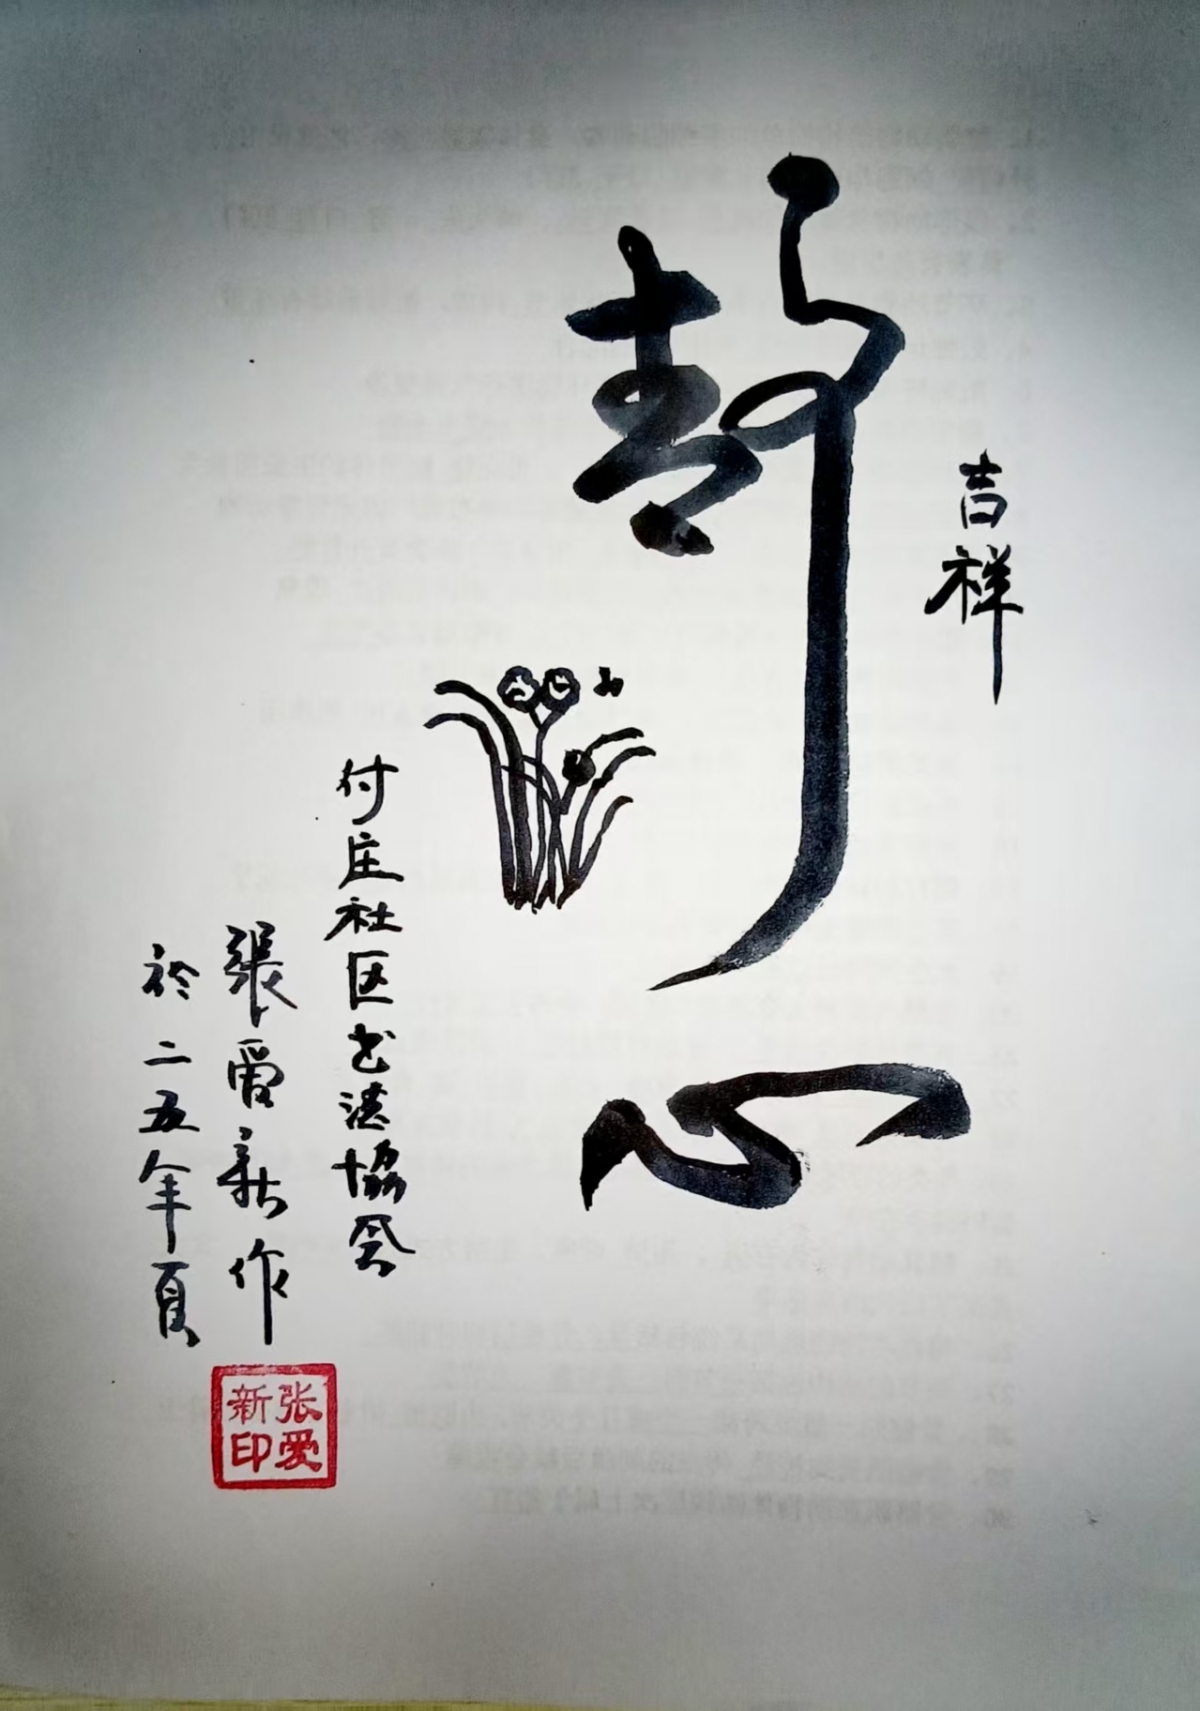 吉祥
静心
付庄社区书法協会
張爱新作
於二五年夏
张爱
新印